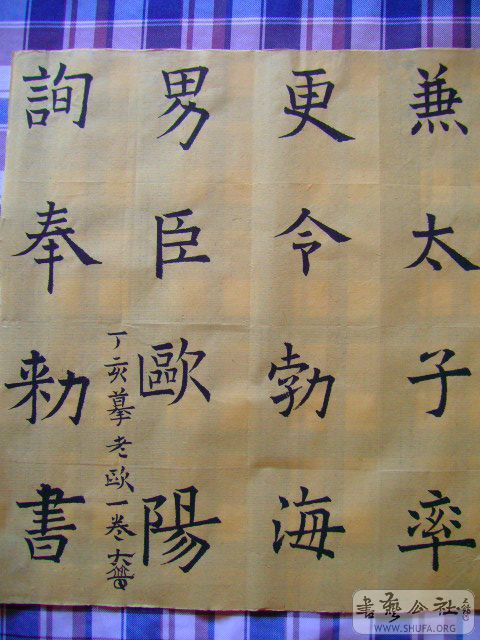 兼太子率
更令勃海
男臣歐陽
丁亥摹老歐一卷
詢奉勅書
書藝公社
WWW.SHUFA.ORG